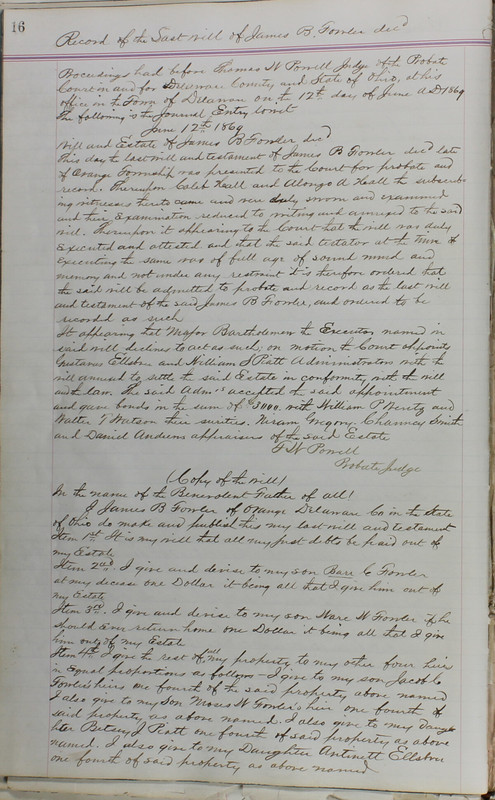 16
Record of the Last will of James B. Fowler dec'd
Proceedings had before Thomas W Powell Judge of the Probate
Court in and for Delaware County and State of Ohio, at his
office in the Town of Delaware on the 12th day of June A D 1869
The following is the Journal Entry towit
June 12th 1869
Will and Estate of James B Fowler dec'd
This day the last will and testament of James B Fowler dec'd late
of Orange Township was presented to the Court for probate and
record. Thereupon Caleb Hall and Alonzo A Hall the subscrib-
ing witnesses thereto came and were duly sworn and examined
and their Examination reduced to writing and annexed to the said
will. Thereupon it appearing to the Court that the will was duly
Executed and attested and that the said testator at the time of
Executing the same was of full age of sound mind and
memory and not under any restraint it is therefore ordered that
the said will be admitted to probate and record as the last will
and testament of the said James B Fowler, and ordered to be
recorded as such
It appearing that Major Bartholomew the Executor named in
said will declines to act as such, on motion the Court appoints
Gustavus Ellsbre and William S Platt Administrators with the
will annexed to settle the said Estate in conformity with the will
and the law. The said Admrs accepted the said appointment
and gave bonds in the sum of with William P and
Walter T Watson their sureties. Hiram Gregory, Chauncy Smith
and Daniel Andrews appraisers of the said Estate
T W Powell
Probate Judge
(Copy of the will)
In the name of the Benevolent Father of all!
I James B Fowler of Orange Delaware Co in the State
of Ohio do make and publish this my last will and testament
Item 1st It is my will that all my just debts be paid out of
my Estate
Item 2nd. I give and devise to my son C Fowler
at my decease one Dollar it being all that I give him out of
my Estate
Item 3rd. I give and devise to my son Ware W Fowler if he
should ever return home one Dollar it being all that I give
him out of my Estate
Item 4th I give the rest of all my property to my other four heirs
in Equal proportions as follows - I give to my son Jacob C
Fowler's heirs one fourth of the said property above named
I also give to my Son Moses W Fowler's heirs one fourth of
said property as above named. I also give to my Daugh
ter Betsey J Platt one fourth of said property as above
named. I also give to my Daughter Antinett Ellsbre
one fourth of said property as above named